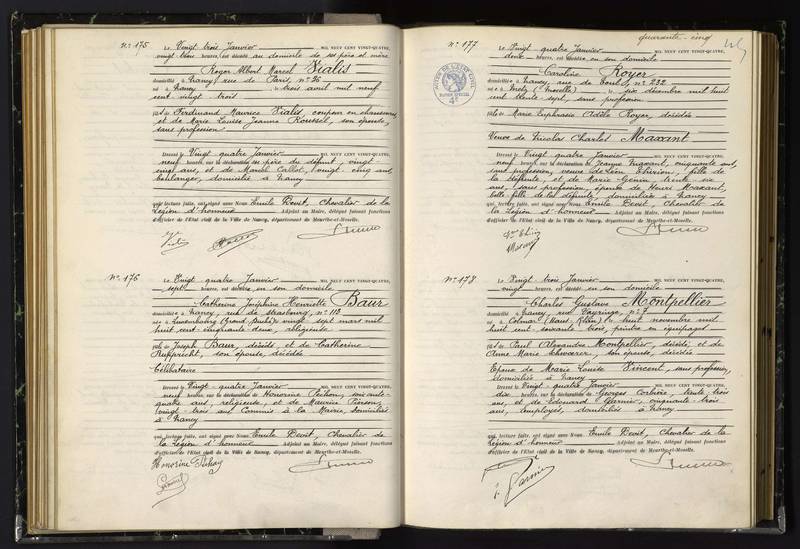 N° 175
Le Vingt trois Janvier MIL NEUF CENT VINGT-QUATRE,
vingt heures, est décédé au domicile de ses père et mère
Roger Albert Marcel Vialis
domicilié à Nancy, rue de Paris, n° 26
né à Nancy, le trois avril mil neuf
cent vingt trois
fils de Ferdinand Maurice Vialis, coupeur en chaussures,
et de Marie Louise Jeanne Roussel, son épouse,
sans profession
Dressé le Vingt quatre Janvier MIL NEUF CENT VINGT-QUATRE,
neuf heures, sur la déclaration du père du défunt, vingt
cinq ans, et de Marcel Callot, vingt cinq ans
boulanger, domicilié à Nancy
qui, lecture faite, ont signé avec Nous Emile Devit, Chevalier de la
Légion d'honneur Adjoint au Maire, délégué faisant fonctions
d'officier de l'Etat civil de la Ville de Nancy, département de Meurthe-et-Moselle.
N° 176
Le Vingt quatre Janvier MIL NEUF CENT VINGT-QUATRE,
sept heures, est décédée, en son domicile
Catherine Joséphine Henriette Baur
domiciliée à Nancy, rue de Strasbourg, n° 113
née à Luxembourg (Grand Duché) vingt sept mars mil
huit cent cinquante deux, religieuse
fille de Joseph Baur, décédé et de Catherine
Rupprecht, son épouse, décédée
Célibataire
Dressé le Vingt quatre Janvier MIL NEUF CENT VINGT-QUATRE,
neuf heures, sur la déclaration de Honorine Pichon, soixante
quatre ans, religieuse, et de Maurice Pierson,
vingt trois ans Commis à la Mairie, domiciliés
à Nancy
qui, lecture faite, ont signé avec Nous Emile Devit, Chevalier de
la Légion d'honneur Adjoint au Maire, délégué faisant fonctions
d'officier de l'Etat civil de la Ville de Nancy, département de Meurthe-et-Moselle.
quarante-cinq
45
N° 177
Le Vingt quatre Janvier MIL NEUF CENT VINGT-QUATRE,
heures, est décédée en son domicile
Caroline Royer
domiciliée à Nancy, rue de Toul, n° 232
née à Metz (Moselle) le six décembre mil huit
cent trente sept, sans profession
fille de Marie Euphrasie Adèle Royer, décédée
Veuve de Nicolas Charles Maxant
Dressé le Vingt quatre Janvier MIL NEUF CENT VINGT-QUATRE,
neuf heures, sur la déclaration de Jeanne Maxant, cinquante ans,
sans profession, veuve de Léon Thirion, fille de
la défunte, et de Marie Génin, trente six
ans, sans profession, épouse de Henri Maxant,
belle fille de la défunte, domiciliées à Nancy
qui, lecture faite, ont signé avec Nous Emile Devit, Chevalier de
la Légion d'honneur Adjoint au Maire, délégué faisant fonctions
d'officier de l'Etat civil de la Ville de Nancy, département de Meurthe-et-Moselle.
N° 178
Le Vingt trois Janvier MIL NEUF CENT VINGT-QUATRE,
vingt heures, est décédé en son domicile
Charles Gustave Montpellier
domicilié à Nancy, rue n° 7
né à Colmar (Haut-Rhin) le huit novembre mil
huit cent soixante trois, peintre en équipages
fils de Paul Alexandre Montpellier, décédé, et de
Anne Marie son épouse, décédée
Epoux de Marie Louise Vincent, sans profession,
domiciliée à Nancy
Dressé le Vingt quatre Janvier MIL NEUF CENT VINGT-QUATRE,
dix heures, sur la déclaration de Georges Corbière, trente trois
ans, et de Edouard Garnier, cinquante trois
ans, employés, domiciliés à Nancy
qui, lecture faite, ont signé avec Nous Emile Devit, Chevalier de la
Légion d'honneur Adjoint au Maire, délégué faisant fonctions
d'officier de l'Etat civil de la Ville de Nancy, département de Meurthe-et-Moselle.